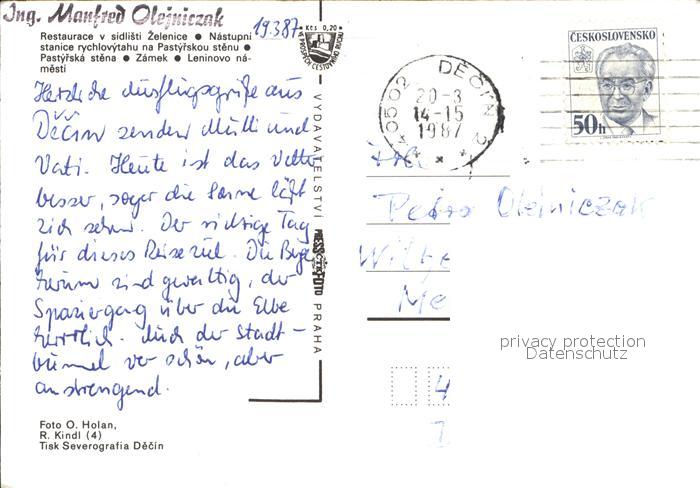 Ing. Manfred Olejniczak
19.3.87
Kčs 0,20
Restaurace v sídlišti Želenice ● Nástupní
stanice rychlovýtahu na Pastýřskou stěnu ●
Pastýřská stěna ● Zámek ● Leninovo ná-
městí
Herzliche Ausflugsgrüße aus
Děčín senden Mutti und
Vati. Heute ist das Wetter
besser, sogar die Sonne läßt
sich sehen. Der richtige Tag
für dieses Reiseziel. Die Berge
herum sind gewaltig, der
Spaziergang über die Elbe
herrlich. Auch der Stadt-
bummel war schön, aber
anstrengend.
Foto O. Holan,
R. Kindl (4)
Tisk Severografia Děčín
VYDAVATELSTVÍ PRESSFOTO PRAHA
40502 DĚČÍN 2
20-3
14-15
1987
ČESKOSLOVENSKO
50h
Petra Olejniczak
privacy protection
Datenschutz